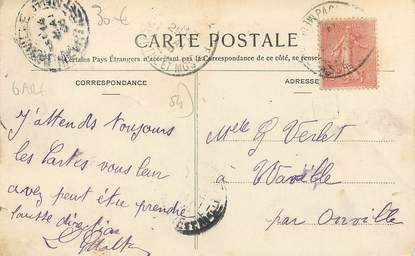 30 €
CARTE POSTALE
Certains Pays Étrangers n'acceptent pas la Correspondance de ce côté
CORRESPONDANCE
ADRESSE
54
J'attends toujours
les Cartes vous leur
avez peut être prendre
fausse direction
Melle G Verlet
à Waville
par Onville